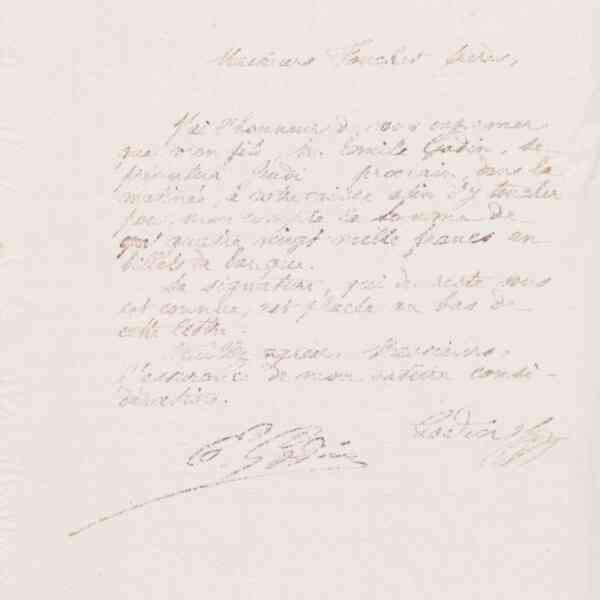 Messieurs Fouchet frères,
J'ai l'honneur de vous informer
que mon fils, M. Emile Godin, se
présentera Jeudi prochain, dans la
matinée, à votre caisse afin d'y toucher
pour mon compte la somme de
quatre vingt mille francs en
billets de banque.
Sa signature, qui du reste vous
est connue, est placée au bas de
cette lettre.
Veuillez agréer, Messieurs,
l'assurance de mon entière consi-
dération.
Godin
E. Godin